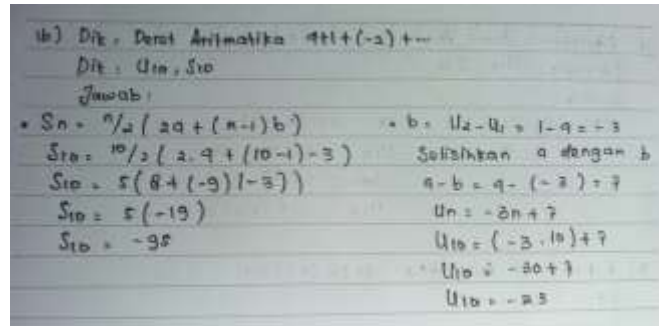 1b) Dik : Deret Aritmatika 4+1+(-2)+...
Dit : U10, S10
Jawab :
• Sn = n/2 (2a + (n-1) b)
S10 = 10/2 (2.4 + (10-1)-3)
S10 = 5(8 + (-9)(-3))
S10 = 5(-19)
S10 = -95
• b = U2-U1 = 1-4 = -3
Selisihkan a dengan b
a-b = 4-(-3) = 7
Un = -3n+7
U10 = (-3.10)+7
U10 = -30+7
U10 = -23